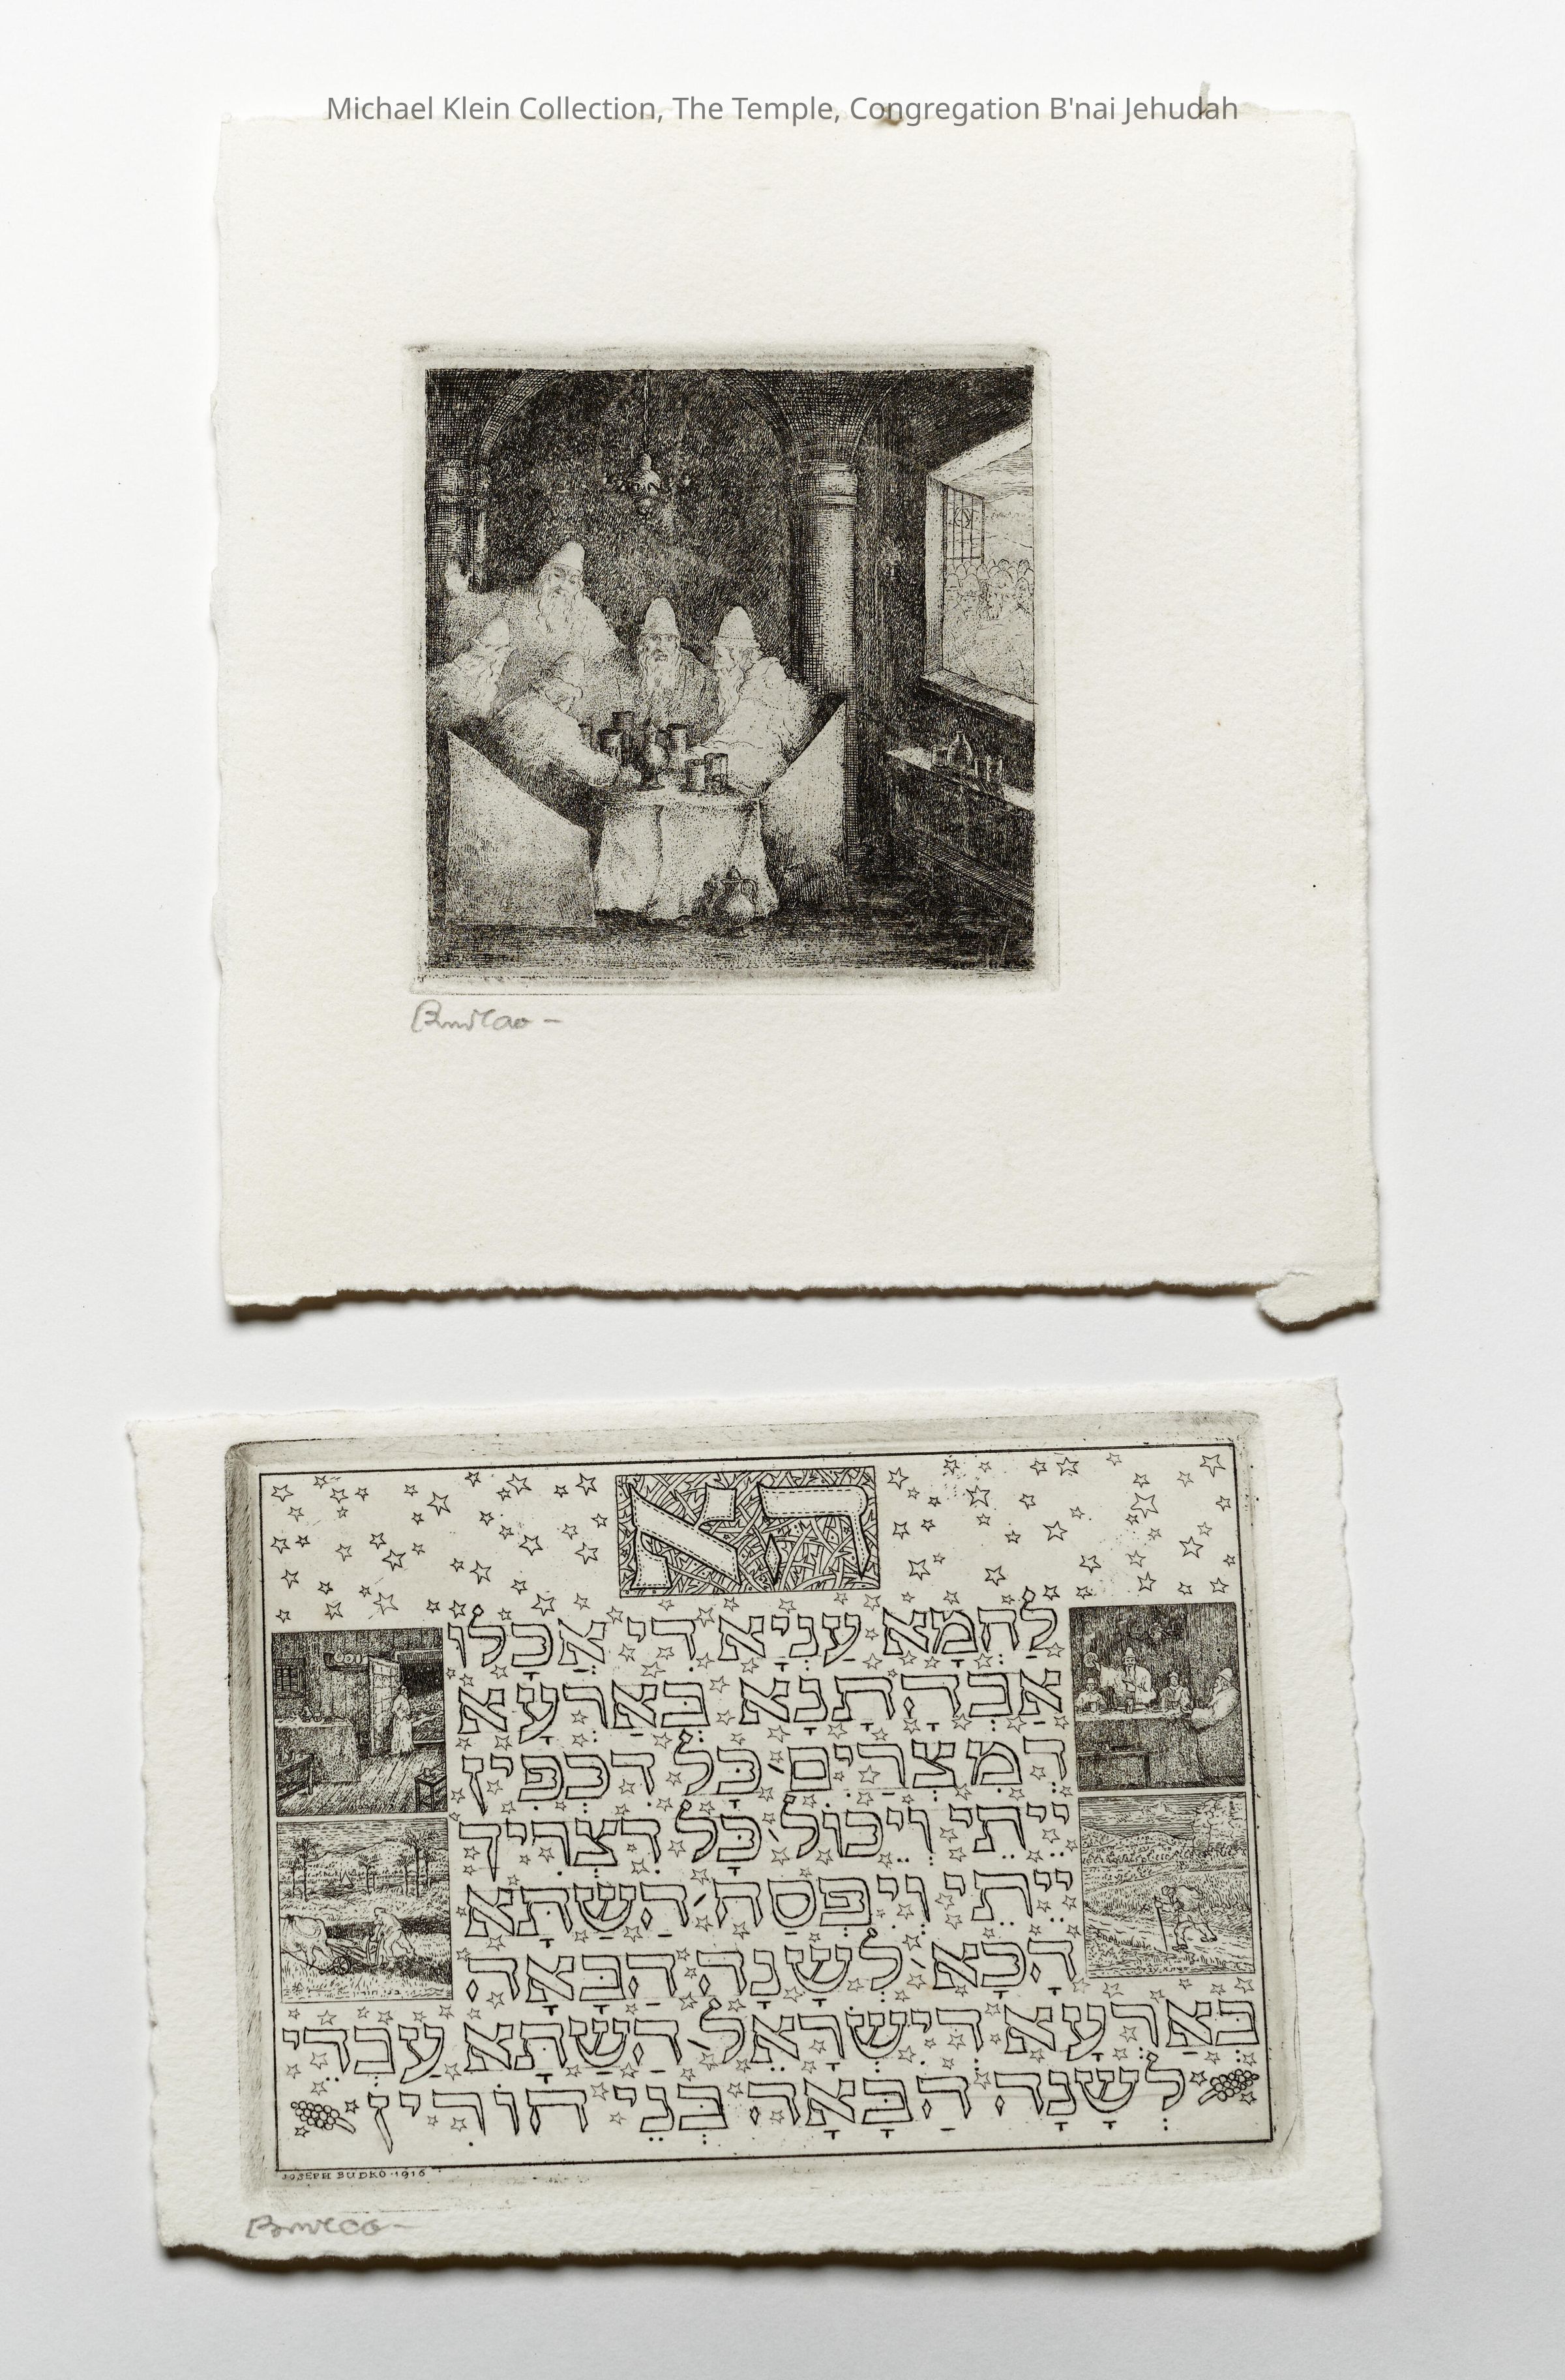 Michael Klein Collection, The Temple, Congregation B'nai Jehudah
Budko
הא
לַחְמָא עַנְיָא דִי אֲכָלוּ
אַבְהָתָנָא בְּאַרְעָא
דְמִצְרַיִם׳ כָּל דִכְפִין
יֵיתֵי וְיֵכוֹל׳ כָּל דִצְרִיךְ
יֵיתֵי וְיִפְסַח׳ הַשַׁתָּא
הָכָא׳ לְשָׁנָה הַבָּאָה
בְּאַרְעָא דְיִשְׂרָאֵל׳ הַשַׁתָּא עַבְדֵי
לְשָׁנָה הַבָּאָה בְּנֵי חוֹרִין
JOSEPH BUDKO·1916
Budko